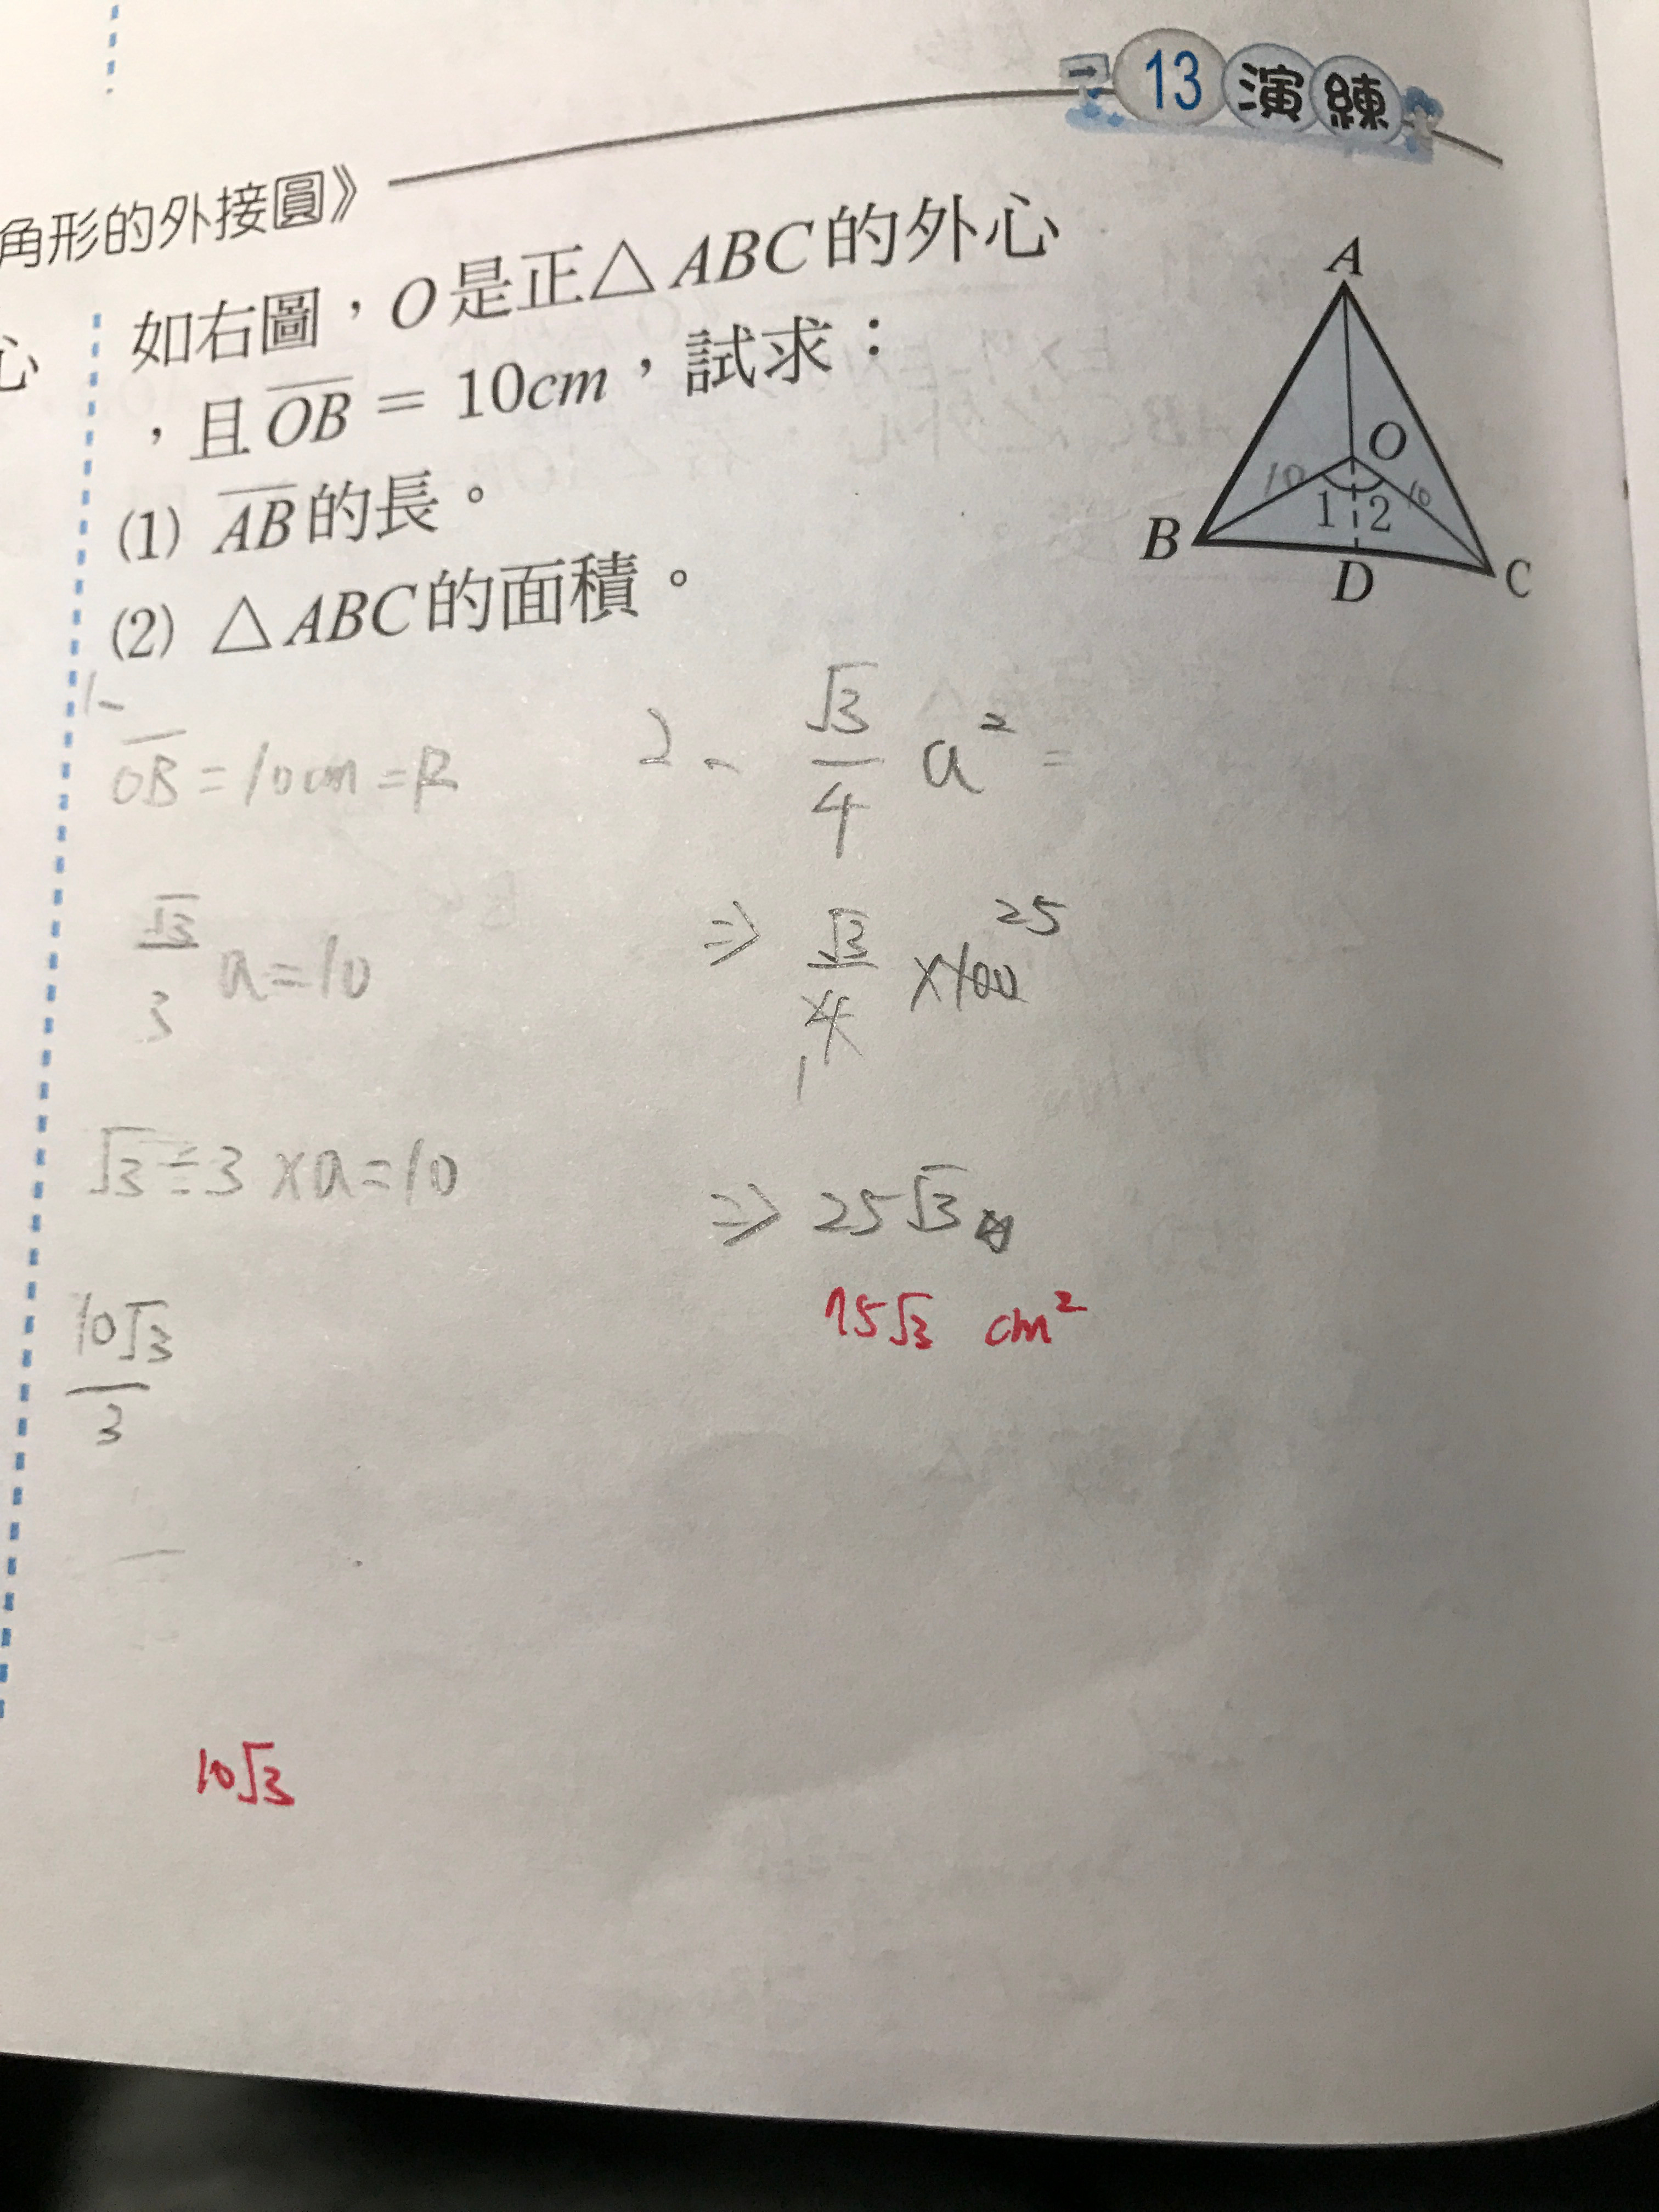 13 演練
角形的外接圓》
心
如右圖，O是正△ABC的外心
，且OB = 10cm，試求：
(1) AB的長。
(2) △ABC的面積。
A
O
10
10
1
2
B
D
C
1、
OB = 10cm = R
√3/3 a = 10
√3 ÷ 3 × a = 10
10√3/3
10√3
2、 √3/4 a² =
⇒ √3/4 × 100 25
1
⇒ 25√3
75√3 cm²